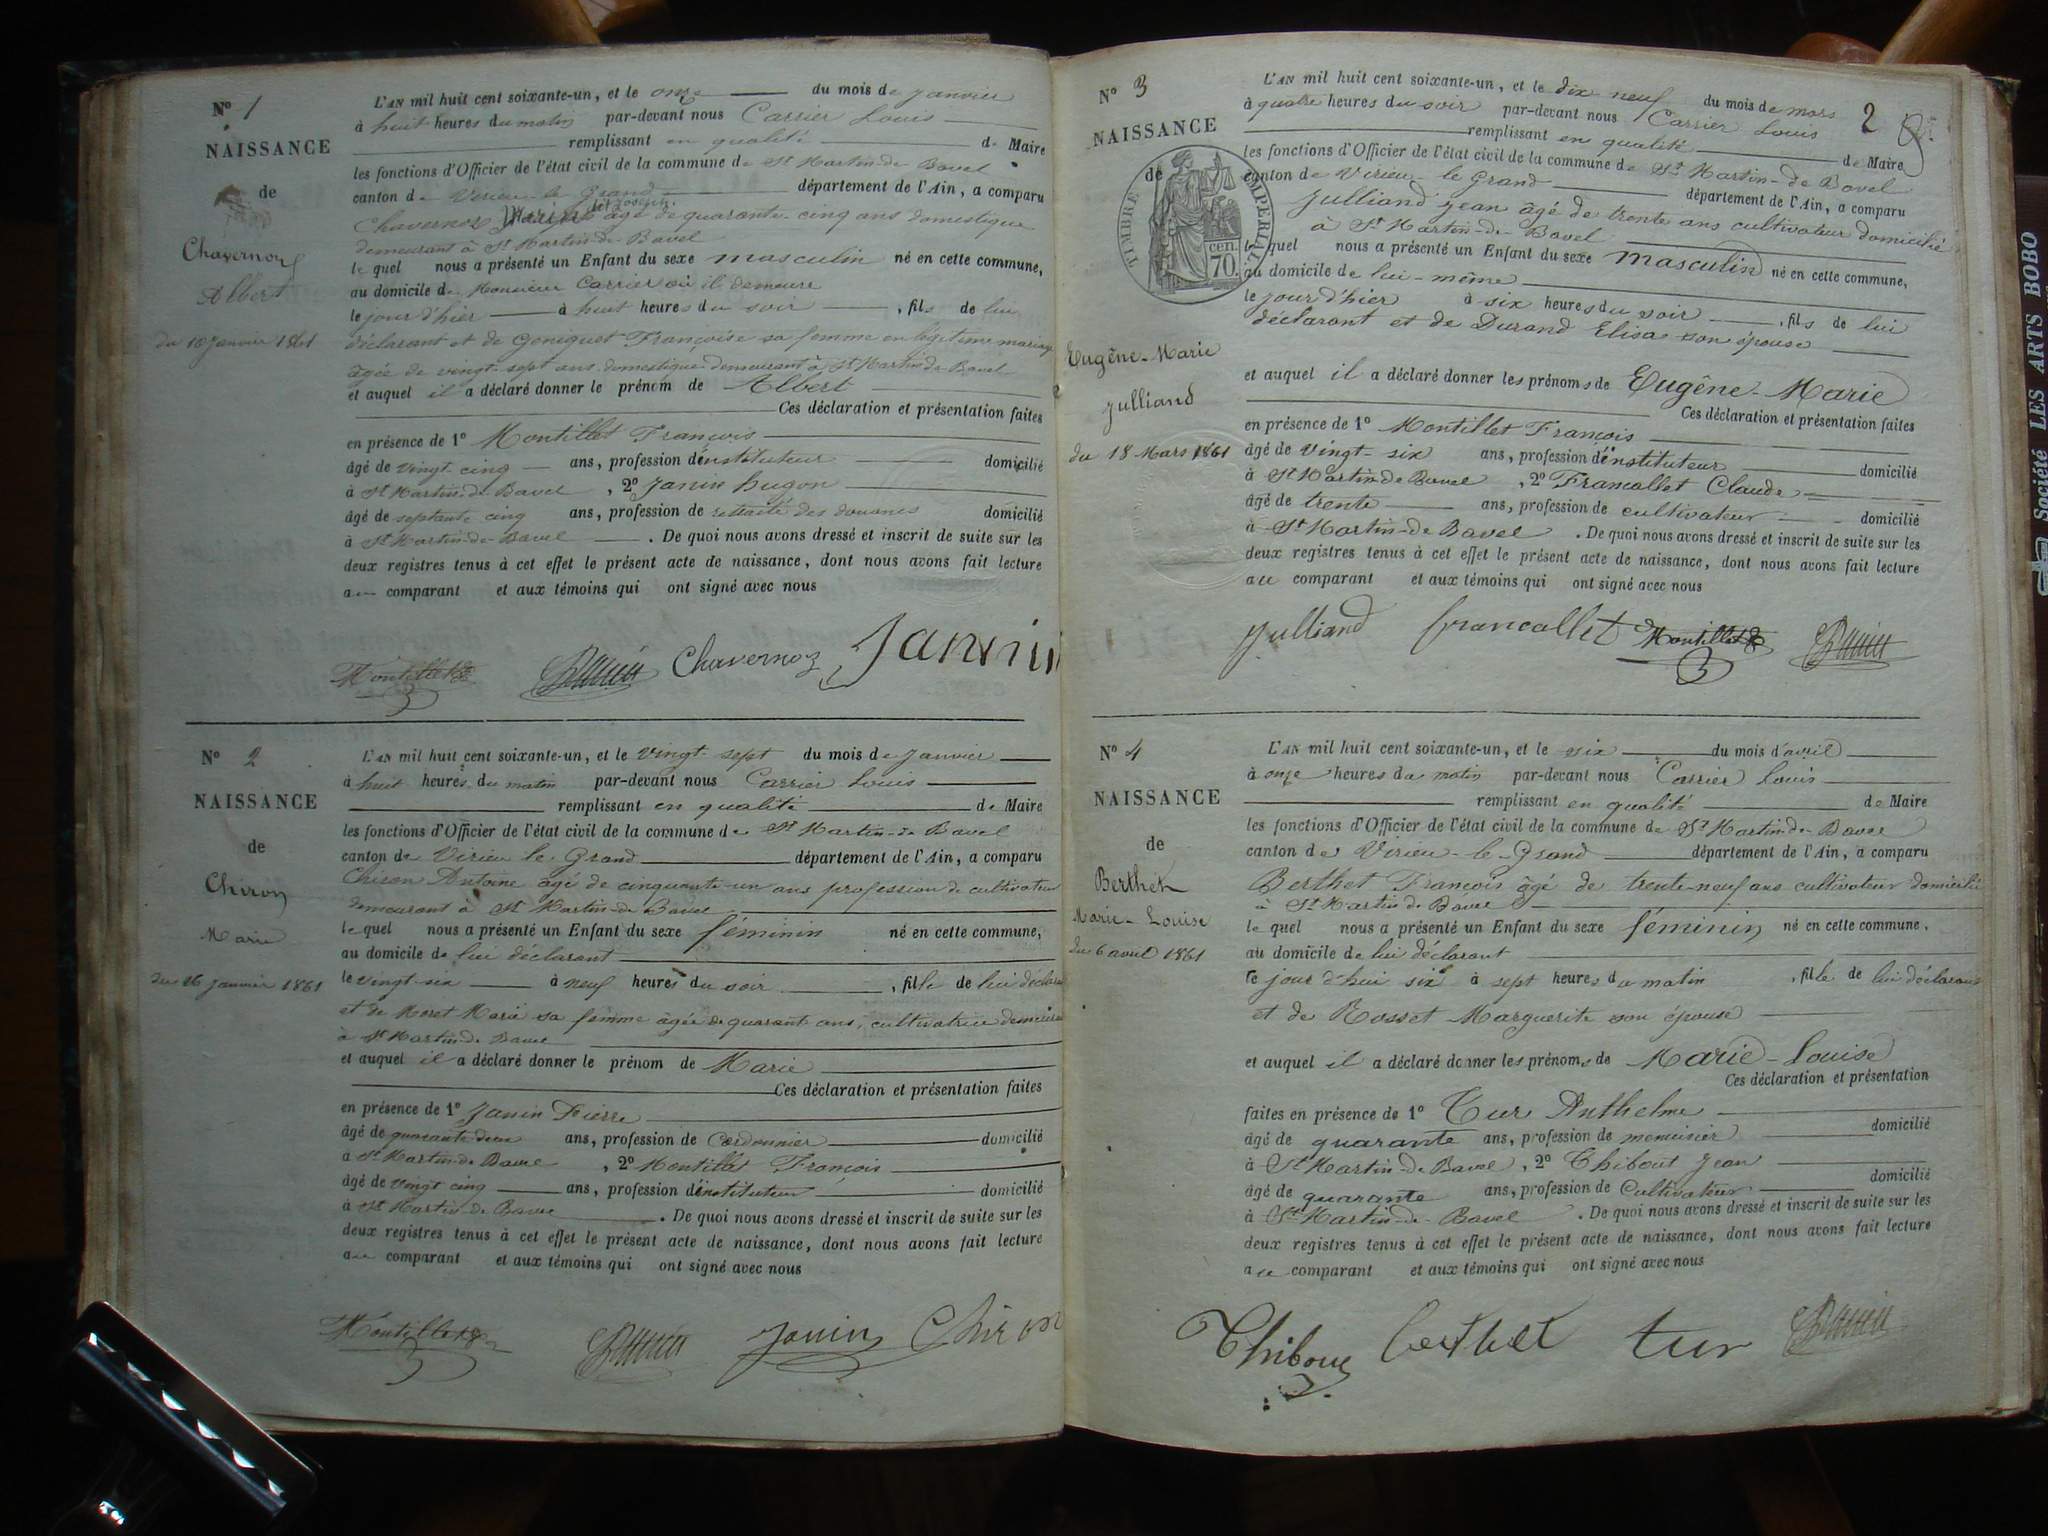 N° 1
NAISSANCE
de
Chavernoz
Albert
du 10 Janvier 1861
L'AN mil huit cent soixante-un, et le onze du mois de Janvier
à huit heures du matin par-devant nous Carrier Louis
remplissant en qualité de Maire
les fonctions d'Officier de l'état civil de la commune de St Martin-de Bavel
canton de Virieu-le Grand département de l'Ain, a comparu
Chavernoz Joseph âgé de quarante-cinq ans domestique
demeurant à St Martin-de-Bavel
le quel nous a présenté un Enfant du sexe masculin né en cette commune,
au domicile de Monsieur Carrier où il demeure
le jour d'hier à huit heures du soir , fils de lui
déclarant et de Geniquet Françoise sa femme en légitime mariage
âgée de vingt-sept ans domestique demeurant à St Martin-de-Bavel
et auquel il a déclaré donner le prénom de Albert
Ces déclaration et présentation faites
en présence de 1° Montillet François
âgé de vingt-cinq ans, profession d'instituteur domicilié
à St Martin-de-Bavel , 2° Janin hugon
âgé de septante cinq ans, profession de retraité des douanes domicilié
à St Martin-de-Bavel . De quoi nous avons dressé et inscrit de suite sur les
deux registres tenus à cet effet le présent acte de naissance, dont nous avons fait lecture
au comparant et aux témoins qui ont signé avec nous
Montillet Carrier Chavernoz Janin
N° 2
NAISSANCE
de
Chiron
Marie
du 26 Janvier 1861
L'AN mil huit cent soixante-un, et le vingt-sept du mois de Janvier
à huit heures du matin par-devant nous Carrier Louis
remplissant en qualité de Maire
les fonctions d'Officier de l'état civil de la commune de St Martin-de Bavel
canton de Virieu le Grand département de l'Ain, a comparu
Chiron Antoine âgé de cinquante-un ans profession de cultivateur
demeurant à St Martin-de Bavel
le quel nous a présenté un Enfant du sexe féminin né en cette commune,
au domicile de lui déclarant
le vingt-six à neuf heures du soir , fille de lui déclarant
et de Moret Marie sa femme âgée de quarante ans, cultivatrice demeurant
à St Martin-de Bavel
et auquel il a déclaré donner le prénom de Marie
Ces déclaration et présentation faites
en présence de 1° Janin Pierre
âgé de quarante deux ans, profession de Cordonnier domicilié
à St Martin-de Bavel , 2° Montillet François
âgé de vingt cinq ans, profession d'instituteur domicilié
à St Martin-de Bavel . De quoi nous avons dressé et inscrit de suite sur les
deux registres tenus à cet effet le présent acte de naissance, dont nous avons fait lecture
au comparant et aux témoins qui ont signé avec nous
Montillet Carrier Janin Chiron
2
N° 3
NAISSANCE
de
TIMBRE IMPERIAL
70 cen.
Eugêne-Marie
Julliand
du 18 Mars 1861
L'AN mil huit cent soixante-un, et le dix neuf du mois de mars
à quatre heures du soir par-devant nous Carrier Louis
remplissant en qualité de Maire
les fonctions d'Officier de l'état civil de la commune de St Martin-de Bavel
canton de Virieu-le Grand département de l'Ain, a comparu
Julliand Jean âgé de trente ans cultivateur domicilié
à St Martin-de-Bavel
le quel nous a présenté un Enfant du sexe masculin né en cette commune,
au domicile de lui-même
le jour d'hier à six heures du soir , fils de lui
déclarant et de Durand Elisa son épouse
et auquel il a déclaré donner les prénoms de Eugêne-Marie
Ces déclaration et présentation faites
en présence de 1° Montillet François
âgé de vingt-six ans, profession d'instituteur domicilié
à St Martin-de Bavel , 2° Francallet Claude
âgé de trente ans, profession de cultivateur domicilié
à St Martin-de Bavel . De quoi nous avons dressé et inscrit de suite sur les
deux registres tenus à cet effet le présent acte de naissance, dont nous avons fait lecture
au comparant et aux témoins qui ont signé avec nous
Julliand francallet Montillet Carrier
N° 4
NAISSANCE
de
Berthet
Marie-Louise
du 6 avril 1861
L'AN mil huit cent soixante-un, et le six du mois d'avril
à onze heures du matin par-devant nous Carrier Louis
remplissant en qualité de Maire
les fonctions d'Officier de l'état civil de la commune de St Martin-de-Bavel
canton de Virieu-le-Grand département de l'Ain, a comparu
Berthet François âgé de trente-neuf ans cultivateur domicilié
à St Martin de Bavel
le quel nous a présenté un Enfant du sexe féminin né en cette commune,
au domicile de lui déclarant
le jour d'hui six à sept heures du matin , fille de lui déclarant
et de Rosset Marguerite son épouse
et auquel il a déclaré donner les prénoms de Marie-Louise
Ces déclaration et présentation
faites en présence de 1° Tur Anthelme
âgé de quarante ans, profession de menuisier domicilié
à St Martin-de-Bavel , 2° Thibout Jean
âgé de quarante ans, profession de Cultivateur domicilié
à St Martin-de-Bavel . De quoi nous avons dressé et inscrit de suite sur les
deux registres tenus à cet effet le présent acte de naissance, dont nous avons fait lecture
au comparant et aux témoins qui ont signé avec nous
Thibout berthet tur Carrier
Société LES ARTS BOBO